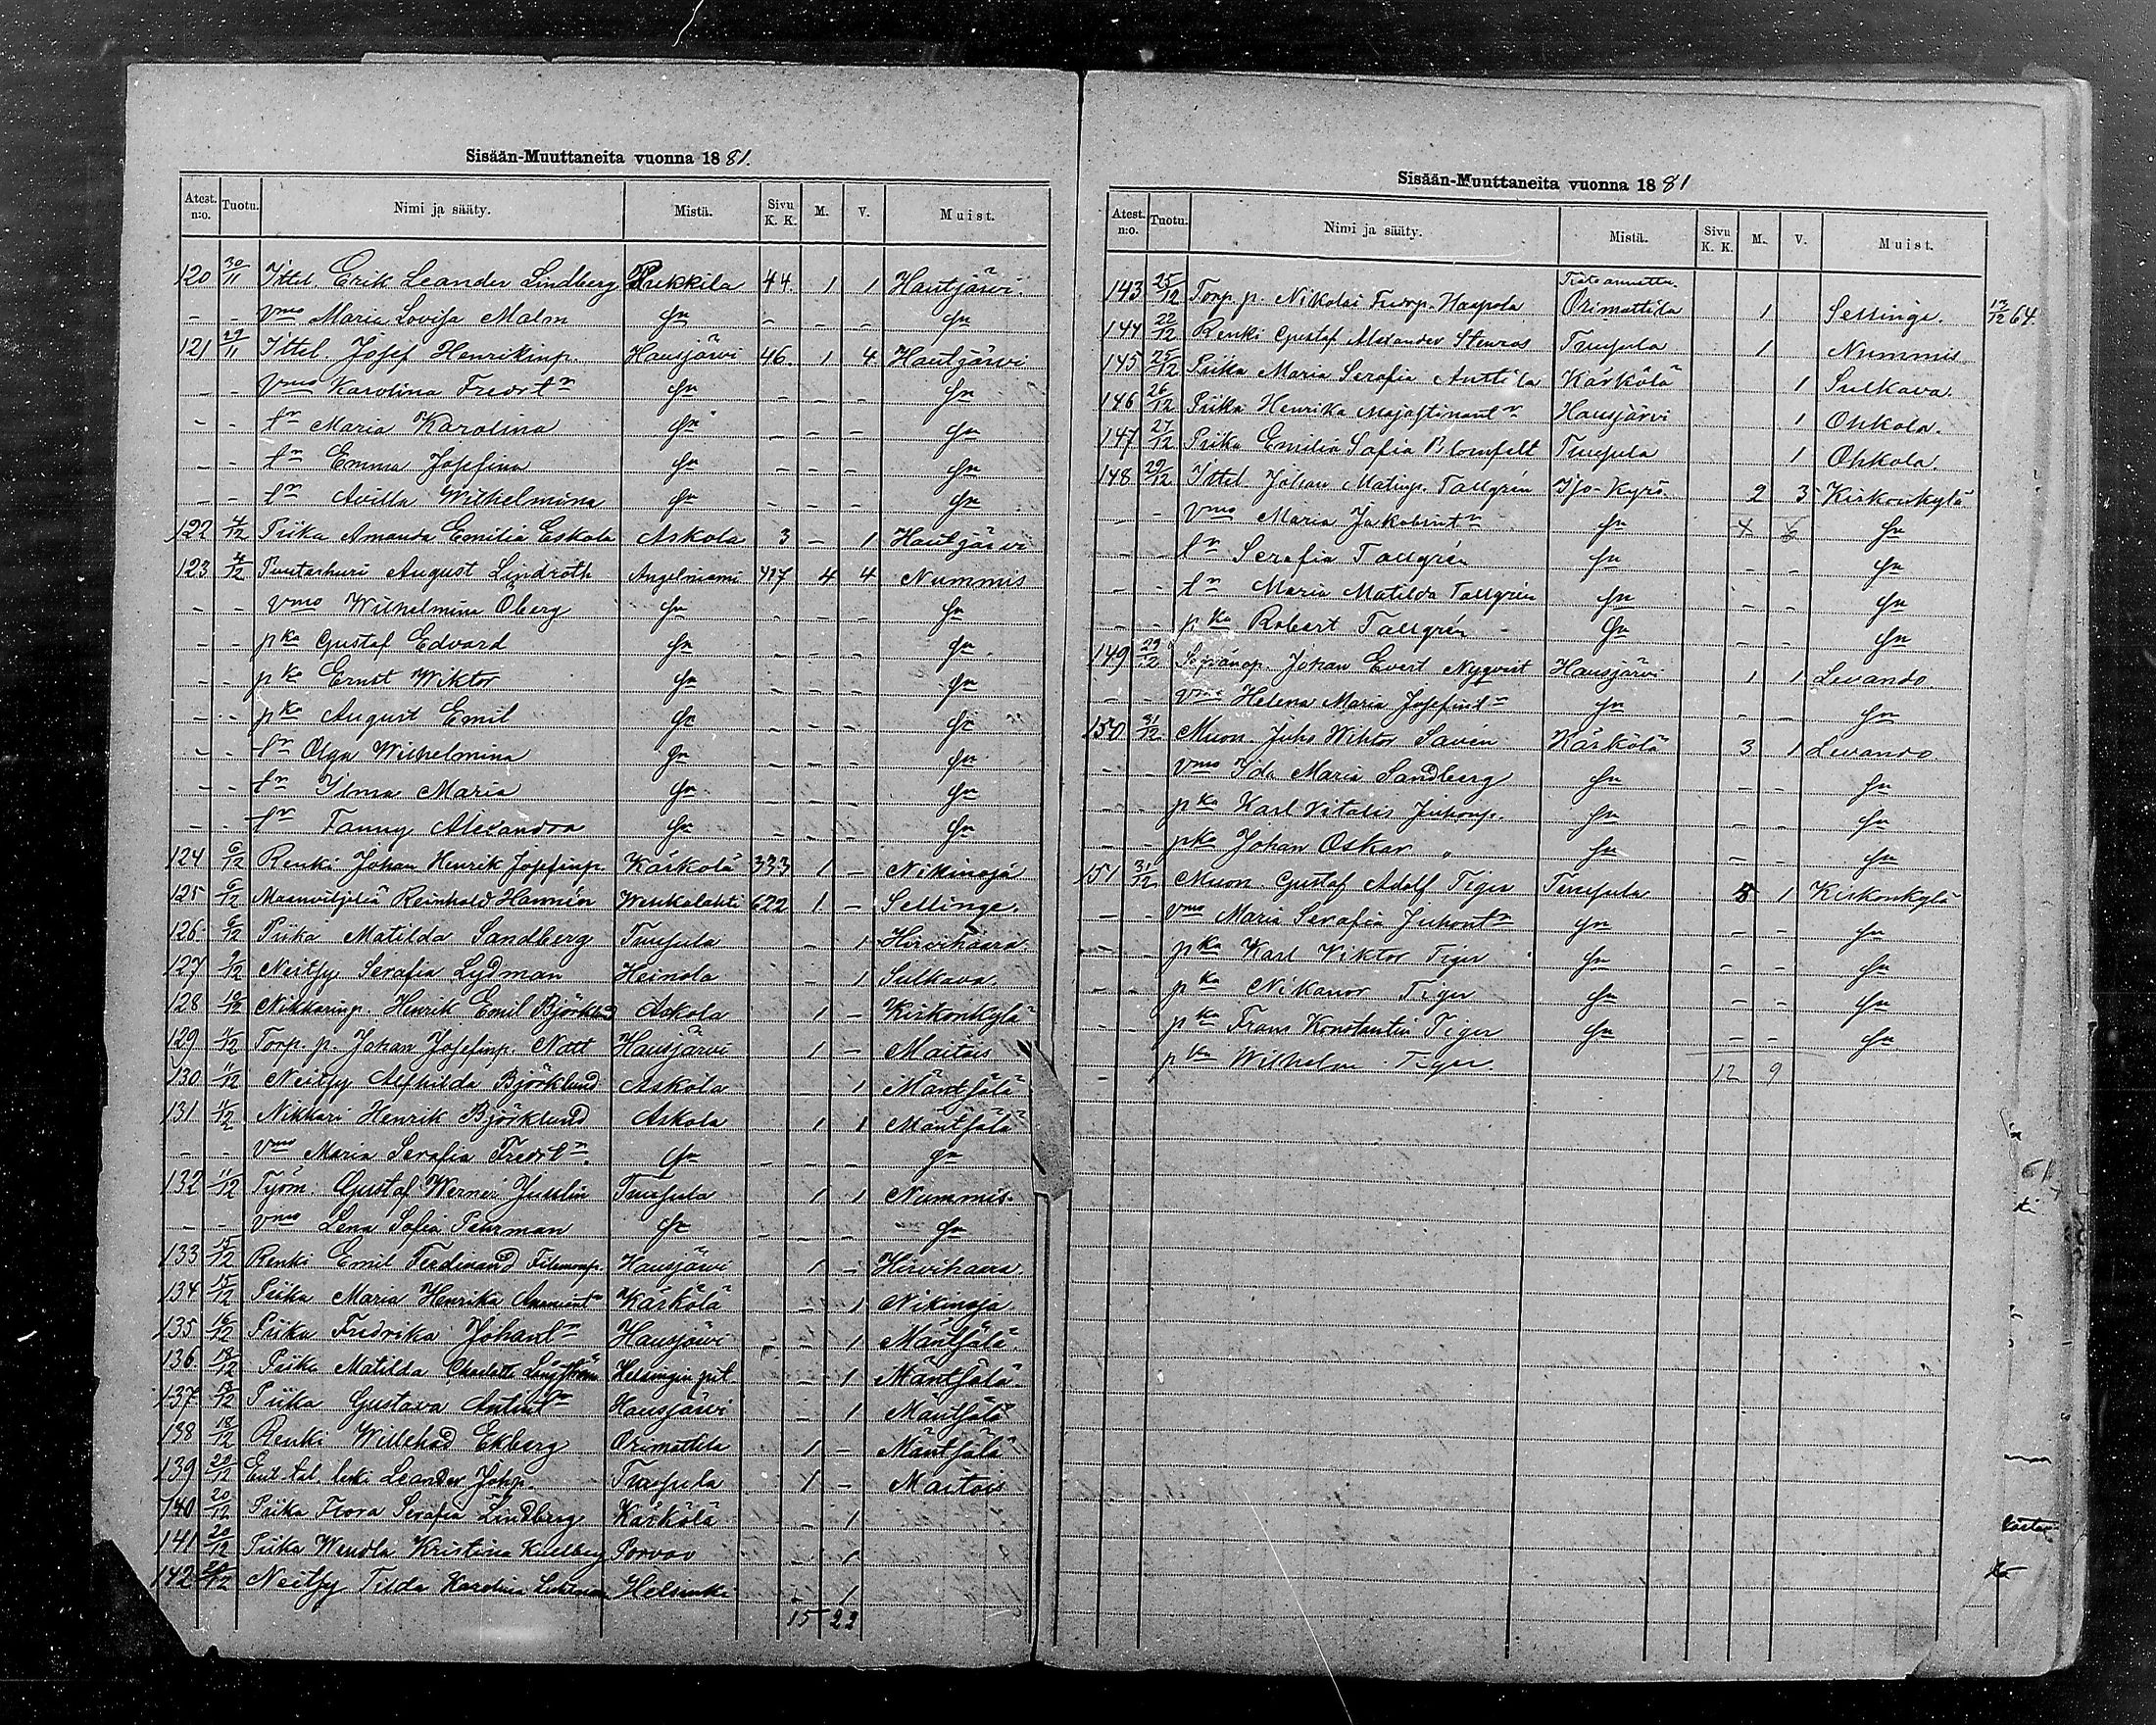 Sisään-Muuttaneita vuonna 1881.
Atest. n:o. Tuotu. Nimi ja sääty. Mistä. Sivu K. K. M. V. Muist.
120 30/11 Ittel. Erik Leander Lindberg Pukkila 44. 1 1 Hautjärvi.
- - vmo Maria Lovisa Malm Sn - - - Sn
121 29/11 Ittel. Josef Henrikinp. Hausjärvi 46. 1 4 Hautjärvi
- - vmo Karolina Fredr tr Sn - - - Sn
- - tr Maria Karolina Sn - - - Sn
- - tr Emma Josefina Sn - - - Sn
- - tr Avilla Wilhelmina Sn - - - Sn
122 4/12 Piika Amanda Emilia Eskola Askola 3 - 1 Hautjärvi
123 4/12 Puutarhuri August Lindroth Angelniemi 417 4 4 Nummis
- - vmo Wilhelmina Öberg Sn - - - Sn
- - pka Gustaf Edvard Sn - - - Sn
- - pka Ernst Wiktor Sn - - - Sn
- - pka August Emil Sn - - - Sn
- - tr Olga Wilhelmina Sn - - - Sn
- - tr Ilma Maria Sn - - - Sn
- - tr Fanny Alexandra Sn - - - Sn
124 6/12 Renki Johan Henrik Josefinp. Kärkölä 333 1 - Nikinoja
125 6/12 Maanviljeliä Reinhold Hannén Wehkalahti 622 1 - Sellinge.
126. 6/12 Piika Matilda Sandberg Tuusula - 1 Hirvihaara
127 9/12 Neitsy Serafia Lydman Heinola - 1 Sulkava.
128 10/12 Nikkarinp. Henrik Emil Björklund Askola 1 - Kirkonkylä
129 11/12 Torp. p. Johan Josefinp. Natt Hausjärvi 1 - Maitois
130 11/12 Neitsy Alfhilda Björklund Askola 1 Mäntsälä
131 11/12 Nikkari Henrik Björklund Askola 1 1 Mäntsälä
- - vmo Maria Serafia Fredr tr. Sn - - - Sn
132 11/12 Työm. Gustaf Werner Juselin Tuusula 1 1 Nummis.
- - vmo Lena Sofia Pehrman Sn - - - Sn
133 15/12 Renki Emil Ferdinand Filemonp. Hausjärvi 1 - Hirvihaara.
134 15/12 Piika Maria Henrika Kärkölä - 1 Nikinoja
135 16/12 Piika Fredrika Johan tr Hausjärvi - 1 Mäntsälä.
136 18/12 Piika Matilda Charlotta Långström Helsingin pit. - 1 Mäntsälä.
137 18/12 Piika Gustava Antin tr Hausjärvi - 1 Mäntsälä
138 18/12 Renki Willehad Ekberg Orimattila 1 - Mäntsälä
139 20/12 Ent. tal. leski Leander Johp. Tuusula 1 - Maitois
140 20/12 Piika Flora Serafia Lindberg Kärkölä - 1
141 20/12 Piika Wendla Kristina Kullberg Porvoo - 1
142 20/12 Neitsy Tilda Karolina Helsinki - 1
15 22
Sisään-Muuttaneita vuonna 1881
Atest. n:o. Tuotu. Nimi ja sääty. Mistä. Sivu K. K. M. V. Muist.
143 25/12 Torp. p. Nikolai Fredrp. Haapola Orimattila 1 Sellinge. 17/12 64.
144 22/12 Renki Gustaf Alexander Stenros Tuusula 1 Nummis
145 25/12 Piika Maria Serafia Anttila Kärkölä 1 Sulkava.
146 26/12 Piika Henrika Hausjärvi 1 Ohkola.
147 27/12 Piika Emilia Sofia Blomfelt Tuusula 1 Ohkola.
148 29/12 Ittel. Johan Matinp. Tallgrén Iso-Kyrö. 2 3 Kirkonkylä
- - vmo Maria Jakobin tr Sn Sn
- - tr Serafia Tallgrén Sn - - Sn
- - tr Maria Matilda Tallgrén Sn - - Sn
- - pka Robert Tallgrén Sn - - Sn
149 29/12 Sepänop. Johan Evert Nyqvist Hausjärvi 1 1 Levando.
- - vmo Helena Maria Josefin tr Sn - - Sn
150 31/12 Muon. Juho Wiktor Saven Kärkölä 3 1 Levando.
- - vmo Ida Maria Sandberg Sn - - Sn
- - pka Karl Vitalis Juhonp. Sn - - Sn
- - pka Johan Oskar " Sn - - Sn
151 31/12 Muon. Gustaf Adolf Tiger Tuusula 5 1 Kirkonkylä
- - vmo Maria Serafia Juhon tr Sn - - Sn
- - pka Karl Viktor Tiger Sn - - Sn
- - pka Nikanor Tiger Sn - - Sn
- - pka Frans Konstantin Tiger Sn - - Sn
- pka Wilhelm Tiger.
12 9